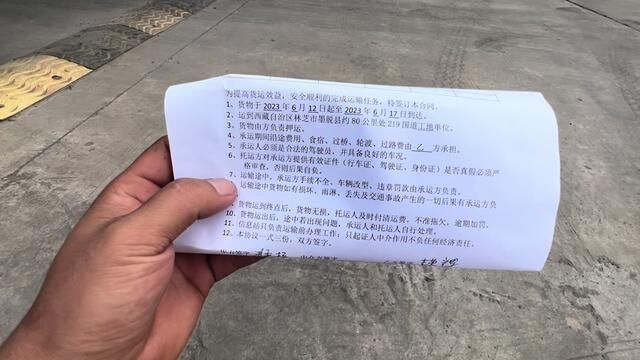 为提高货运效益，安全顺利的完成运输任务，特签订本合同。
1、货物于 2023 年 6 月 12 日起至 2023 年 6 月 17 日到达。
2、运到西藏自治区林芝市墨脱县约 80 公里处 219 国道工地单位。
3、货物由方负责押运。
4、承运期间沿途费用、食宿、过桥、轮渡、过路费由 方承担。
5、承运人必须是合法的驾驶员，并具备良好的车况。
6、托运方对承运方提供有效证件（行车证、驾驶证、身份证）是否真假必须严
格审查，否则后果自负。
7、运输途中，承运方手续不全、车辆改型、违章罚款由承运方负责。
运输途中货物如有损坏、雨淋、丢失及交通事故产生的一切后果有承运方负
货物运到终点后，货物无损，托运人及时付清运费，不准拖欠，逾期加罚。
10、货物运出后，途中若出现问题，承运人和托运人自行处理。
11、信息站只负责运输前办理工作：只起证人中介作用不负任何经济责任。
12、本协议一式三份，双方签字。